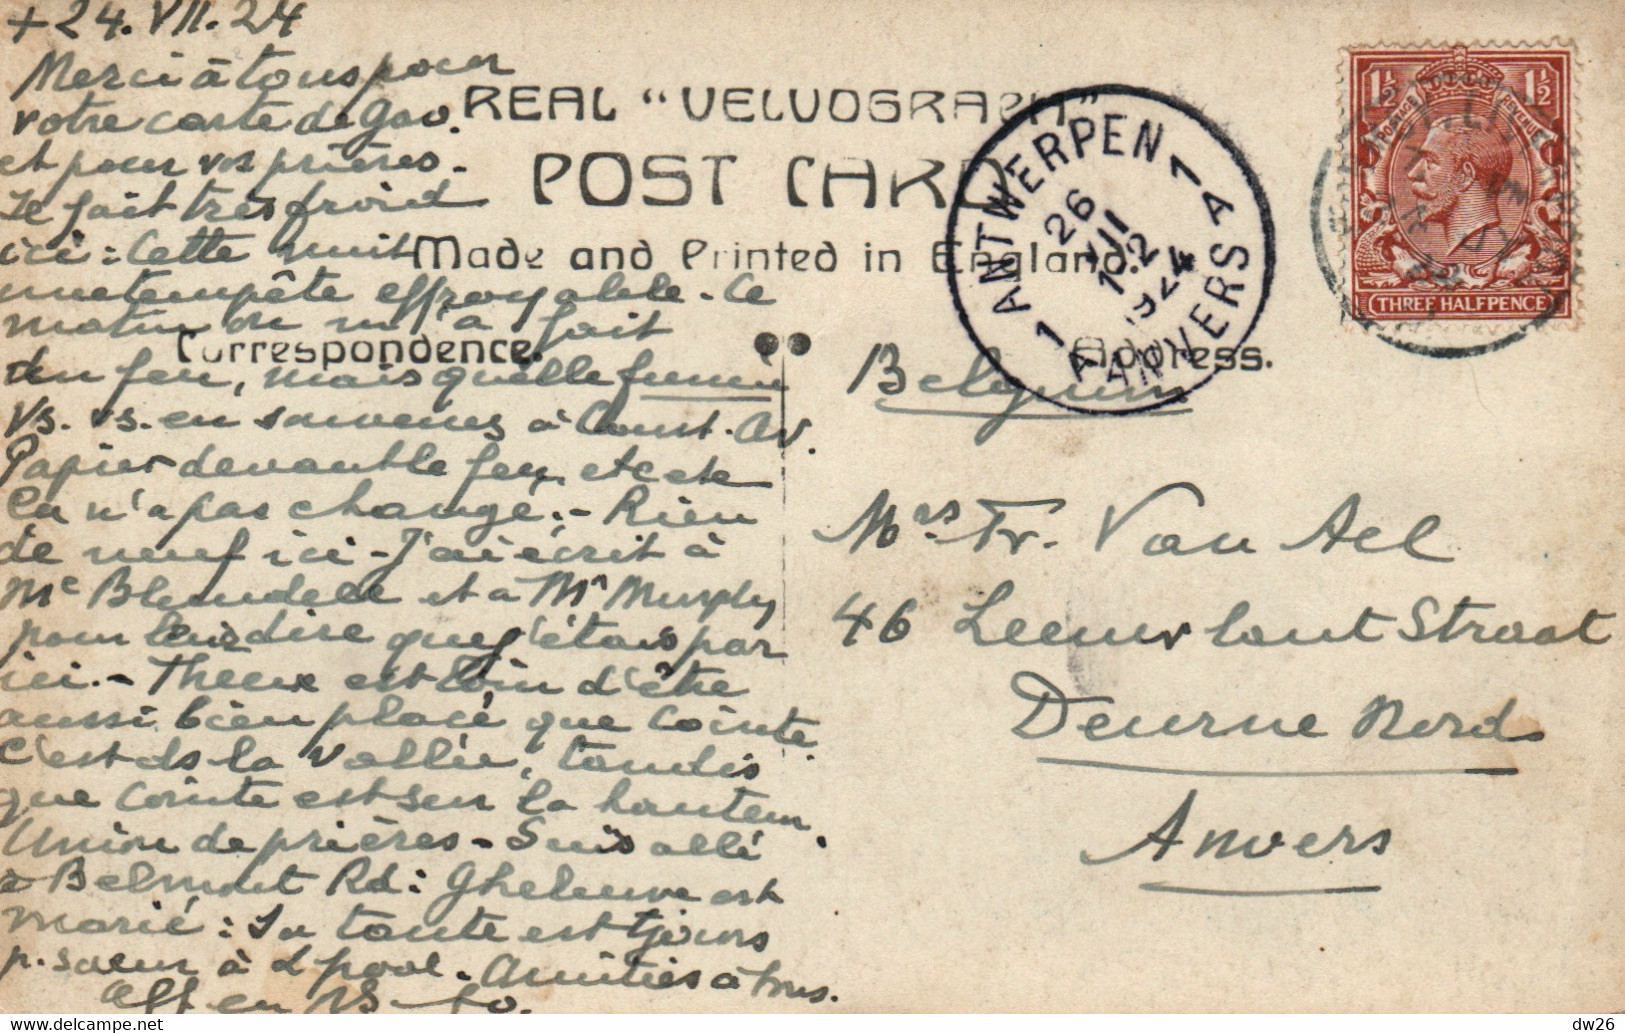 + 24. VII. 24
Merci à tous pour
votre carte de Gav.
et pour vos prières.
Il fait très froid
ici : Cette nuit
une tempête effroyable. Ce
matin on m'a fait
du feu, mais quelle fumée
Vs. vs. en souvenez à Const. Av.
Papier devant le feu etc etc
Ça n'a pas changé. - Rien
de neuf ici - J'ai écrit à
Me Blundell et à Mr Murphy
pour leur dire que j'étais par
ici. - Theux est loin d'être
aussi bien placé que Cointe.
C'est ds la vallée, tandis
que Cointe est sur la hauteur.
Union de prières - Suis allé
à Belmont Rd : Gheluwe est
marié : Sa tante est tjours
p. soeur à L'pool. Amitiés à tous.
Aff en NS
REAL "VELVOGRAPH"
POST CARD
Made and Printed in England.
Correspondence.
Address.
ANTWERPEN 1
26 VII 12
1924
1 A ANVERS A
1½ 1½
POSTAGE REVENUE
THREE HALFPENCE
Belgium
Mrs Fr. Van Ael
46 Leeuwlantstraat
Deurne Nord
Anvers
dw26